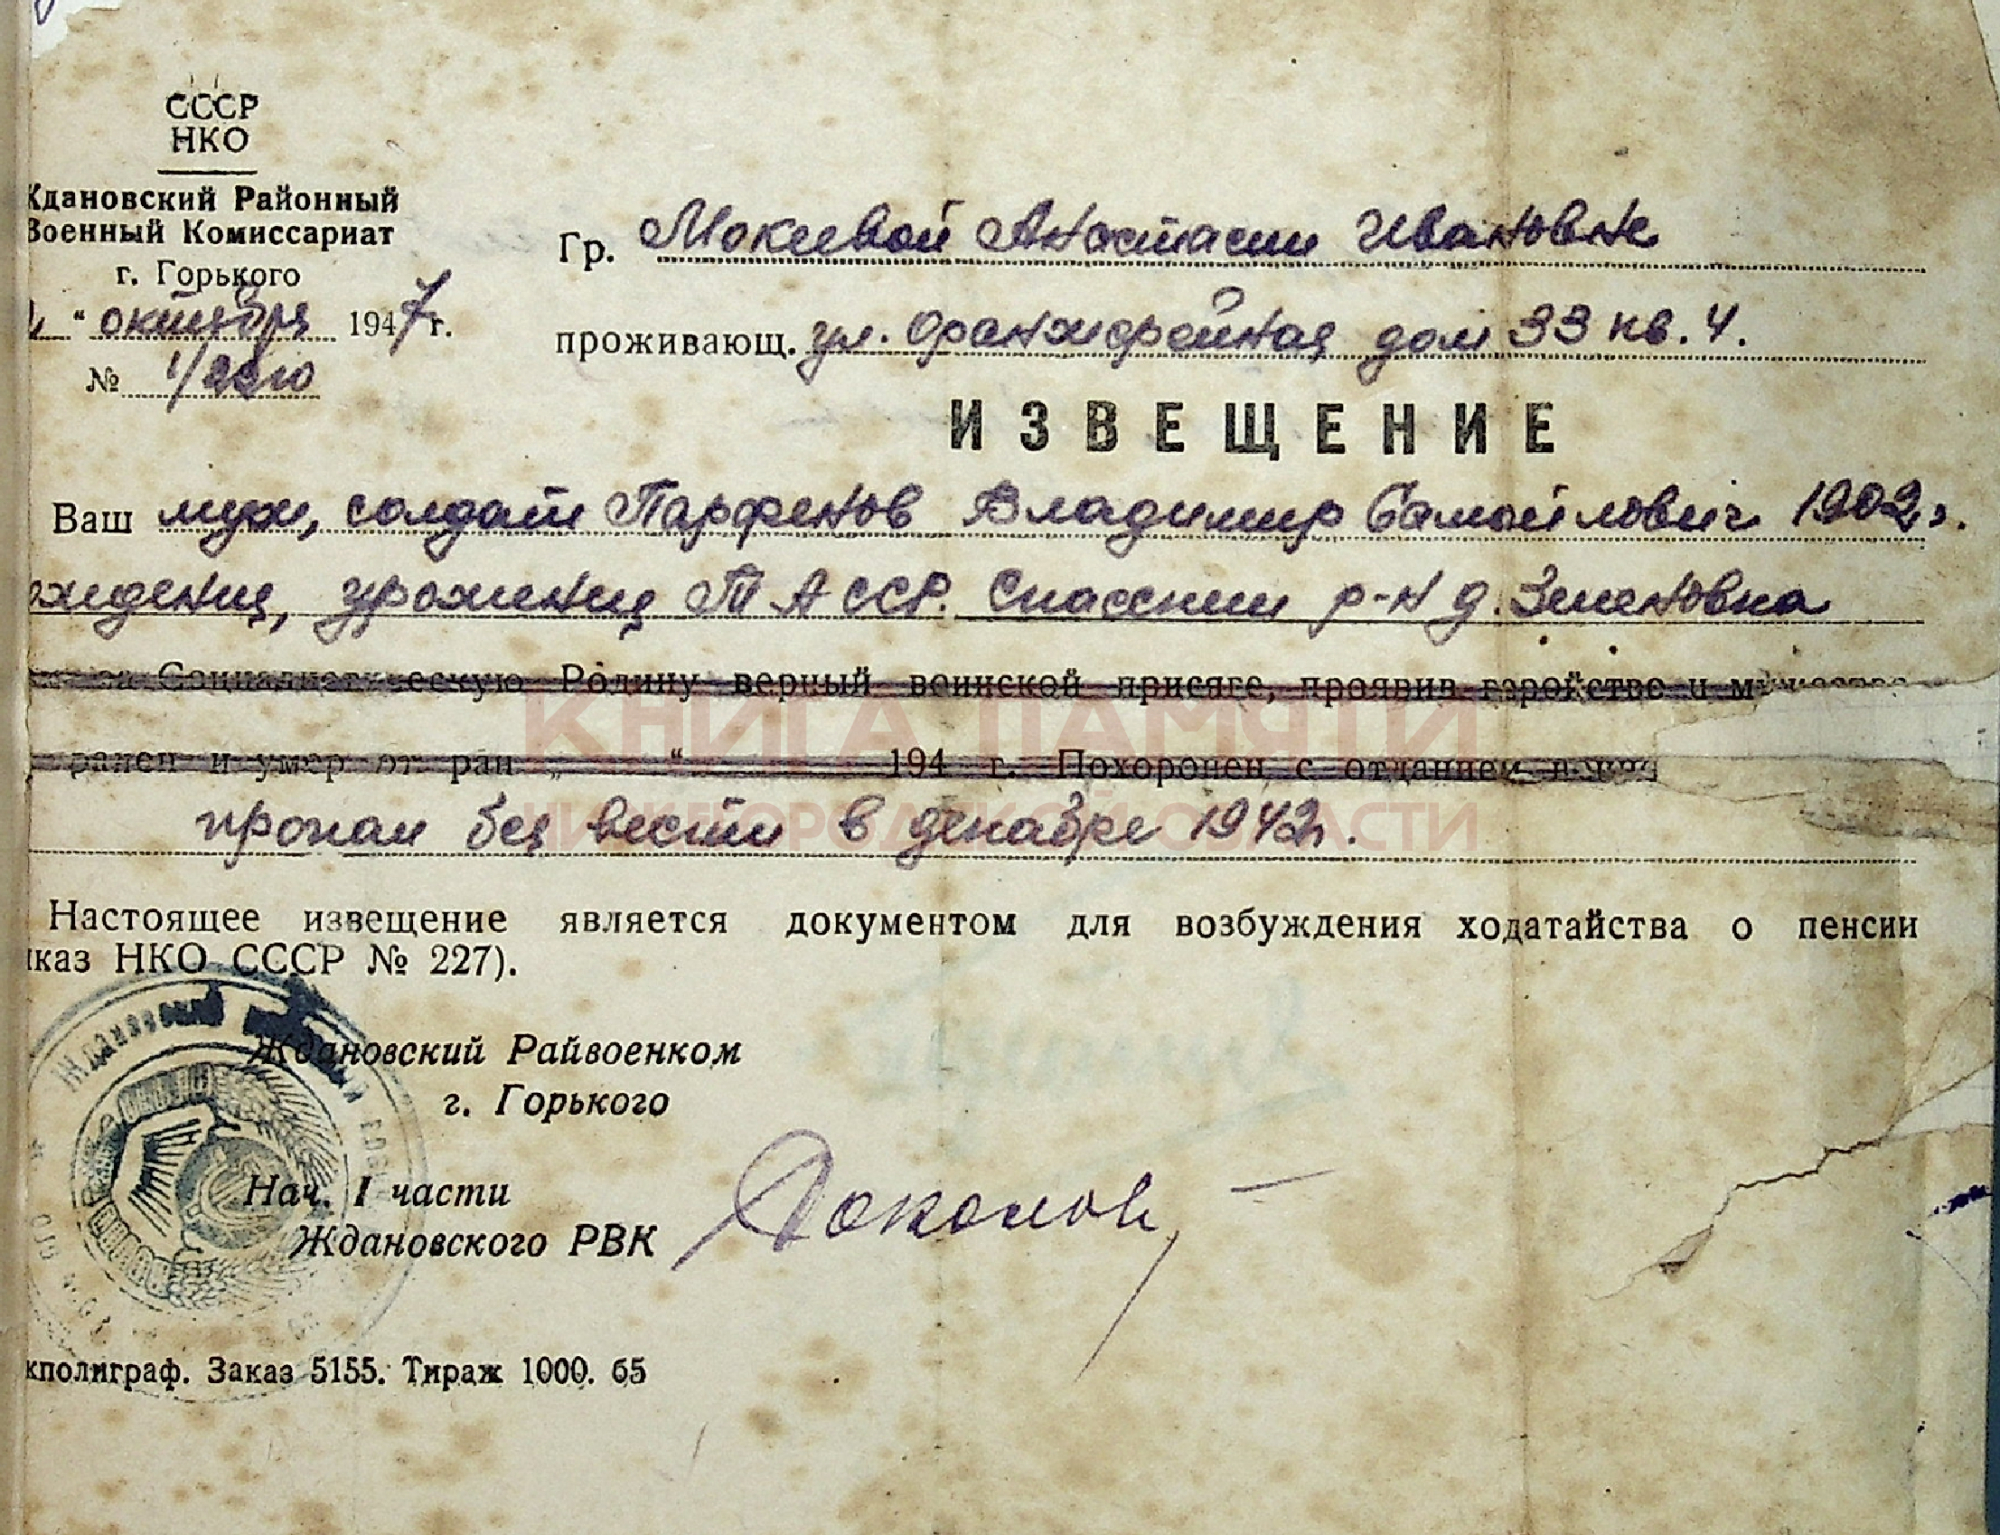 СССР
НКО
Ждановский Районный
Военный Комиссариат
г. Горького
" октября 1947 г.
№ 1/2210
Гр. Мокиевой Анастасии Ивановне
проживающ. ул. Оранжерейная дом 33 кв. 4.
ИЗВЕЩЕНИЕ
Ваш муж, солдат Парфенов Владимир Самойлович 1902 г.
рождения, уроженец ТАССР. Спасский р-н д. Зеленовка
за Социалистическую Родину верный воинской присяге, проявив геройство и мужество
ранен и умер от ран „ “ 194 г. Похоронен с отданием
пропал без вести в декабре 1942 г.
Настоящее извещение является документом для возбуждения ходатайства о пенсии
иказ НКО СССР № 227).
Ждановский Райвоенком
г. Горького
Нач. I части
Ждановского РВК
кполиграф. Заказ 5155. Тираж 1000. 65
КНИГА ПАМЯТИ
НИЖЕГОРОДСКОЙ ОБЛАСТИ